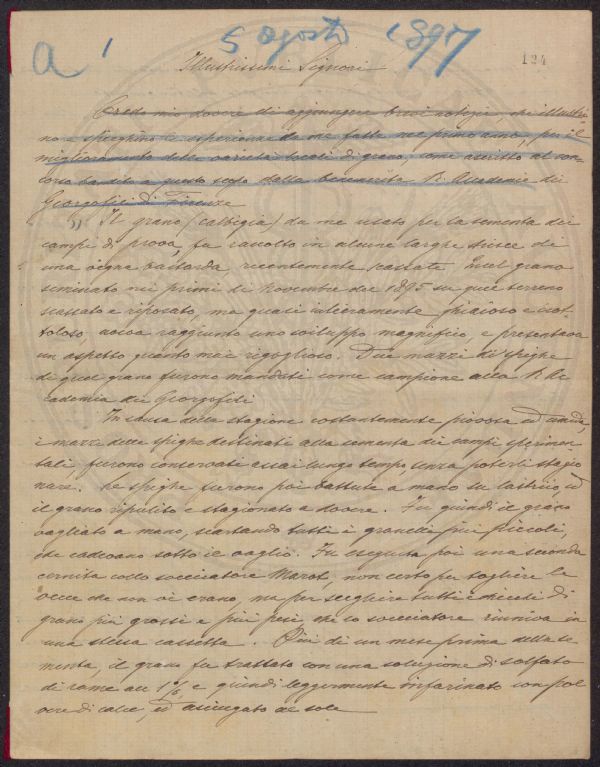 a 1 5 agosto 1897
124
Illustrissimi Signori
Credo mio dovere di aggiungere brevi notizie, che illustri-
no e spieghino le esperienze da me fatte nel primo anno, per il
miglioramento delle varietà locali di grano, come ascritto al con-
corso bandito a questo scopo dalla benemerita R. Accademia dei
Georgofili di Firenze
Il grano (calbigia) da me usato per la sementa dei
campi di prova, fu raccolto in alcune larghe strisce di
una vigna bastarda, recentemente scassata. Quel grano
seminato nei primi di Novembre del 1895 su quel terreno
scassato e riposato, ma quasi intieramente ghiaioso e ciot-
toloso, aveva raggiunto uno sviluppo magnifico, e presentava
un aspetto quanto mai rigoglioso. Due mazzi di spighe
di quel grano furono mandati come campione alla R. Ac
cademia dei Georgofili
In causa della stagione costantemente piovosa ed umida,
i mazzi delle spighe destinati alla sementa dei campi sperimen-
tali furono conservati assai lungo tempo senza poterli stagio
nare. Le spighe furono poi battute a mano su lastrico, ed
il grano ripulito e stagionato a dovere. Fu quindi il grano
vagliato a mano, scartando tutti i granelli più piccoli,
che cadevano sotto il vaglio. Fu eseguita poi una seconda
cernita collo svecciatore Marot, non certo per togliere le
vecce che non vi erano, ma per scegliere tutti i chicchi di
grano più grossi e più pesi, che lo svecciatore riuniva in
una stessa cassetta. Più di un mese prima della se
menta, il grano fu trattato con una soluzione di solfato
di rame all' 1%, e quindi leggermente infarinato con pol
vere di calce, ed asciugato al sole